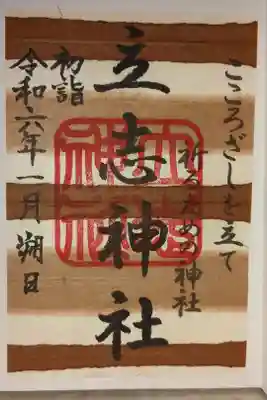 こころざしを立て
祈るための神社
立志神社
初詣
令和六年一月朔日